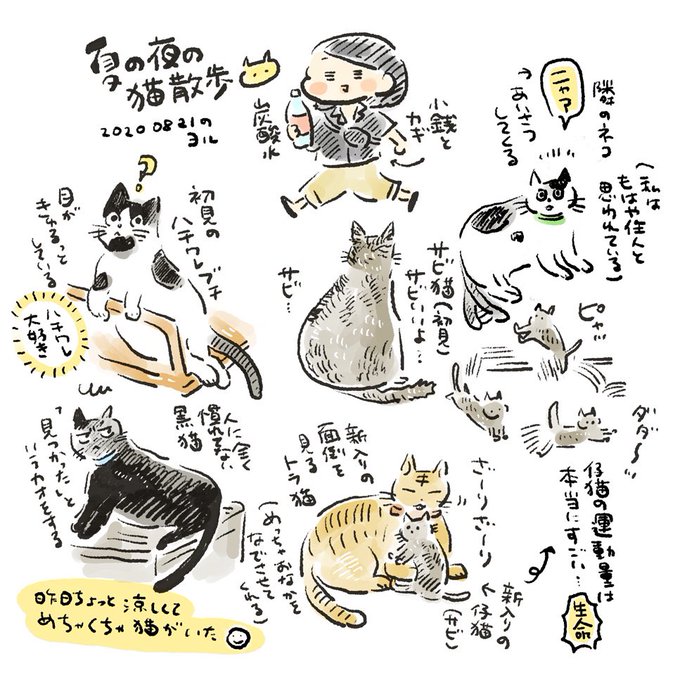 夏の夜の
猫散歩
2020 08 21の
ヨル
炭酸水
小銭と
カギ
ニャ?
隣のネコ
あいさつ
してくる
(私は
もはや住人と
思われている)
?
初見の
ハチワレブチ
目が
きゅるっと
している
ハチワレ
大好き
サビ猫(初見)
サビいいよ…
サビ…
ピャッ
ダダ〜ッ
仔猫の運動量は
本当にすごい…
生命
人に全く
慣れない
黒猫
「見つかった」と
いうカオをする
新入りの
面倒を
見る
トラ猫
(めっちゃおなかを
なでさせて
くれる)
ざーりざーり
新入りの
仔猫
(サビ)
昨日ちょっと涼しくて
めちゃくちゃ猫がいた